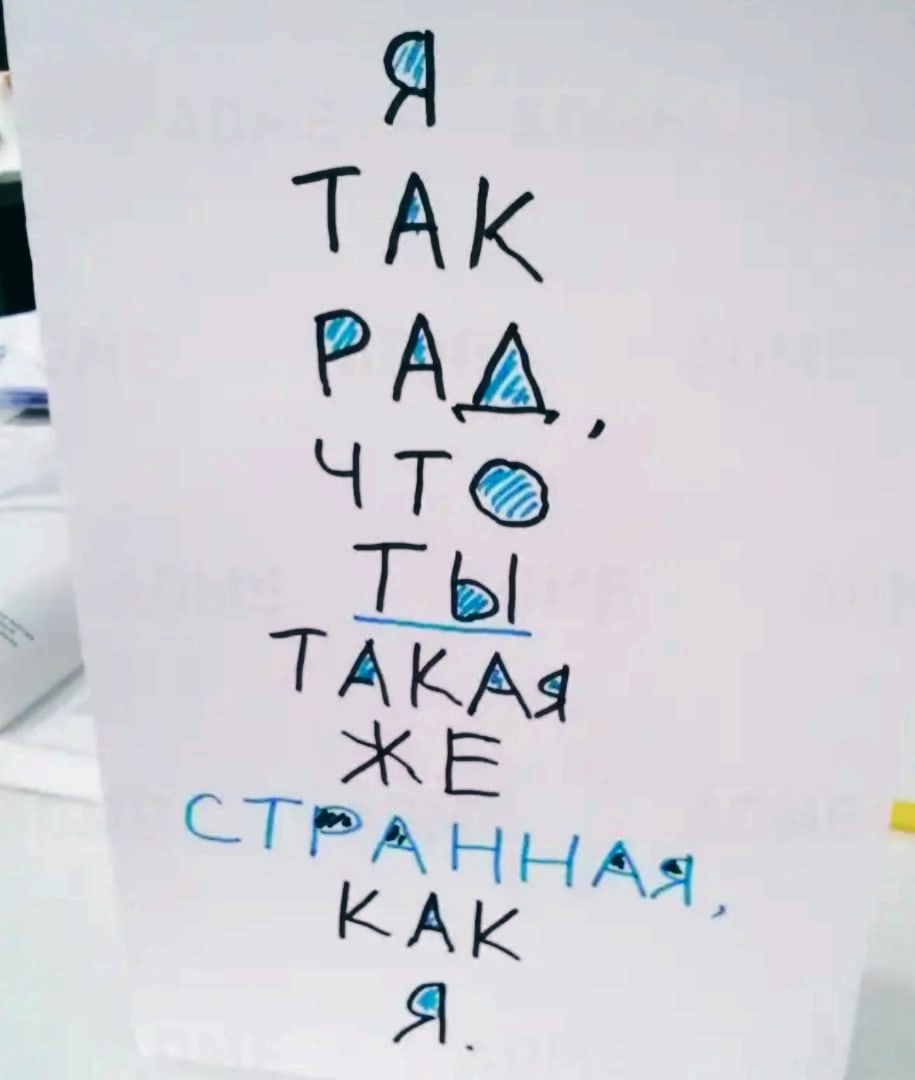 Я
ТАК
РАД,
ЧТО
ТЫ
ТАКАЯ
ЖЕ
СТРАННАЯ,
КАК
Я.